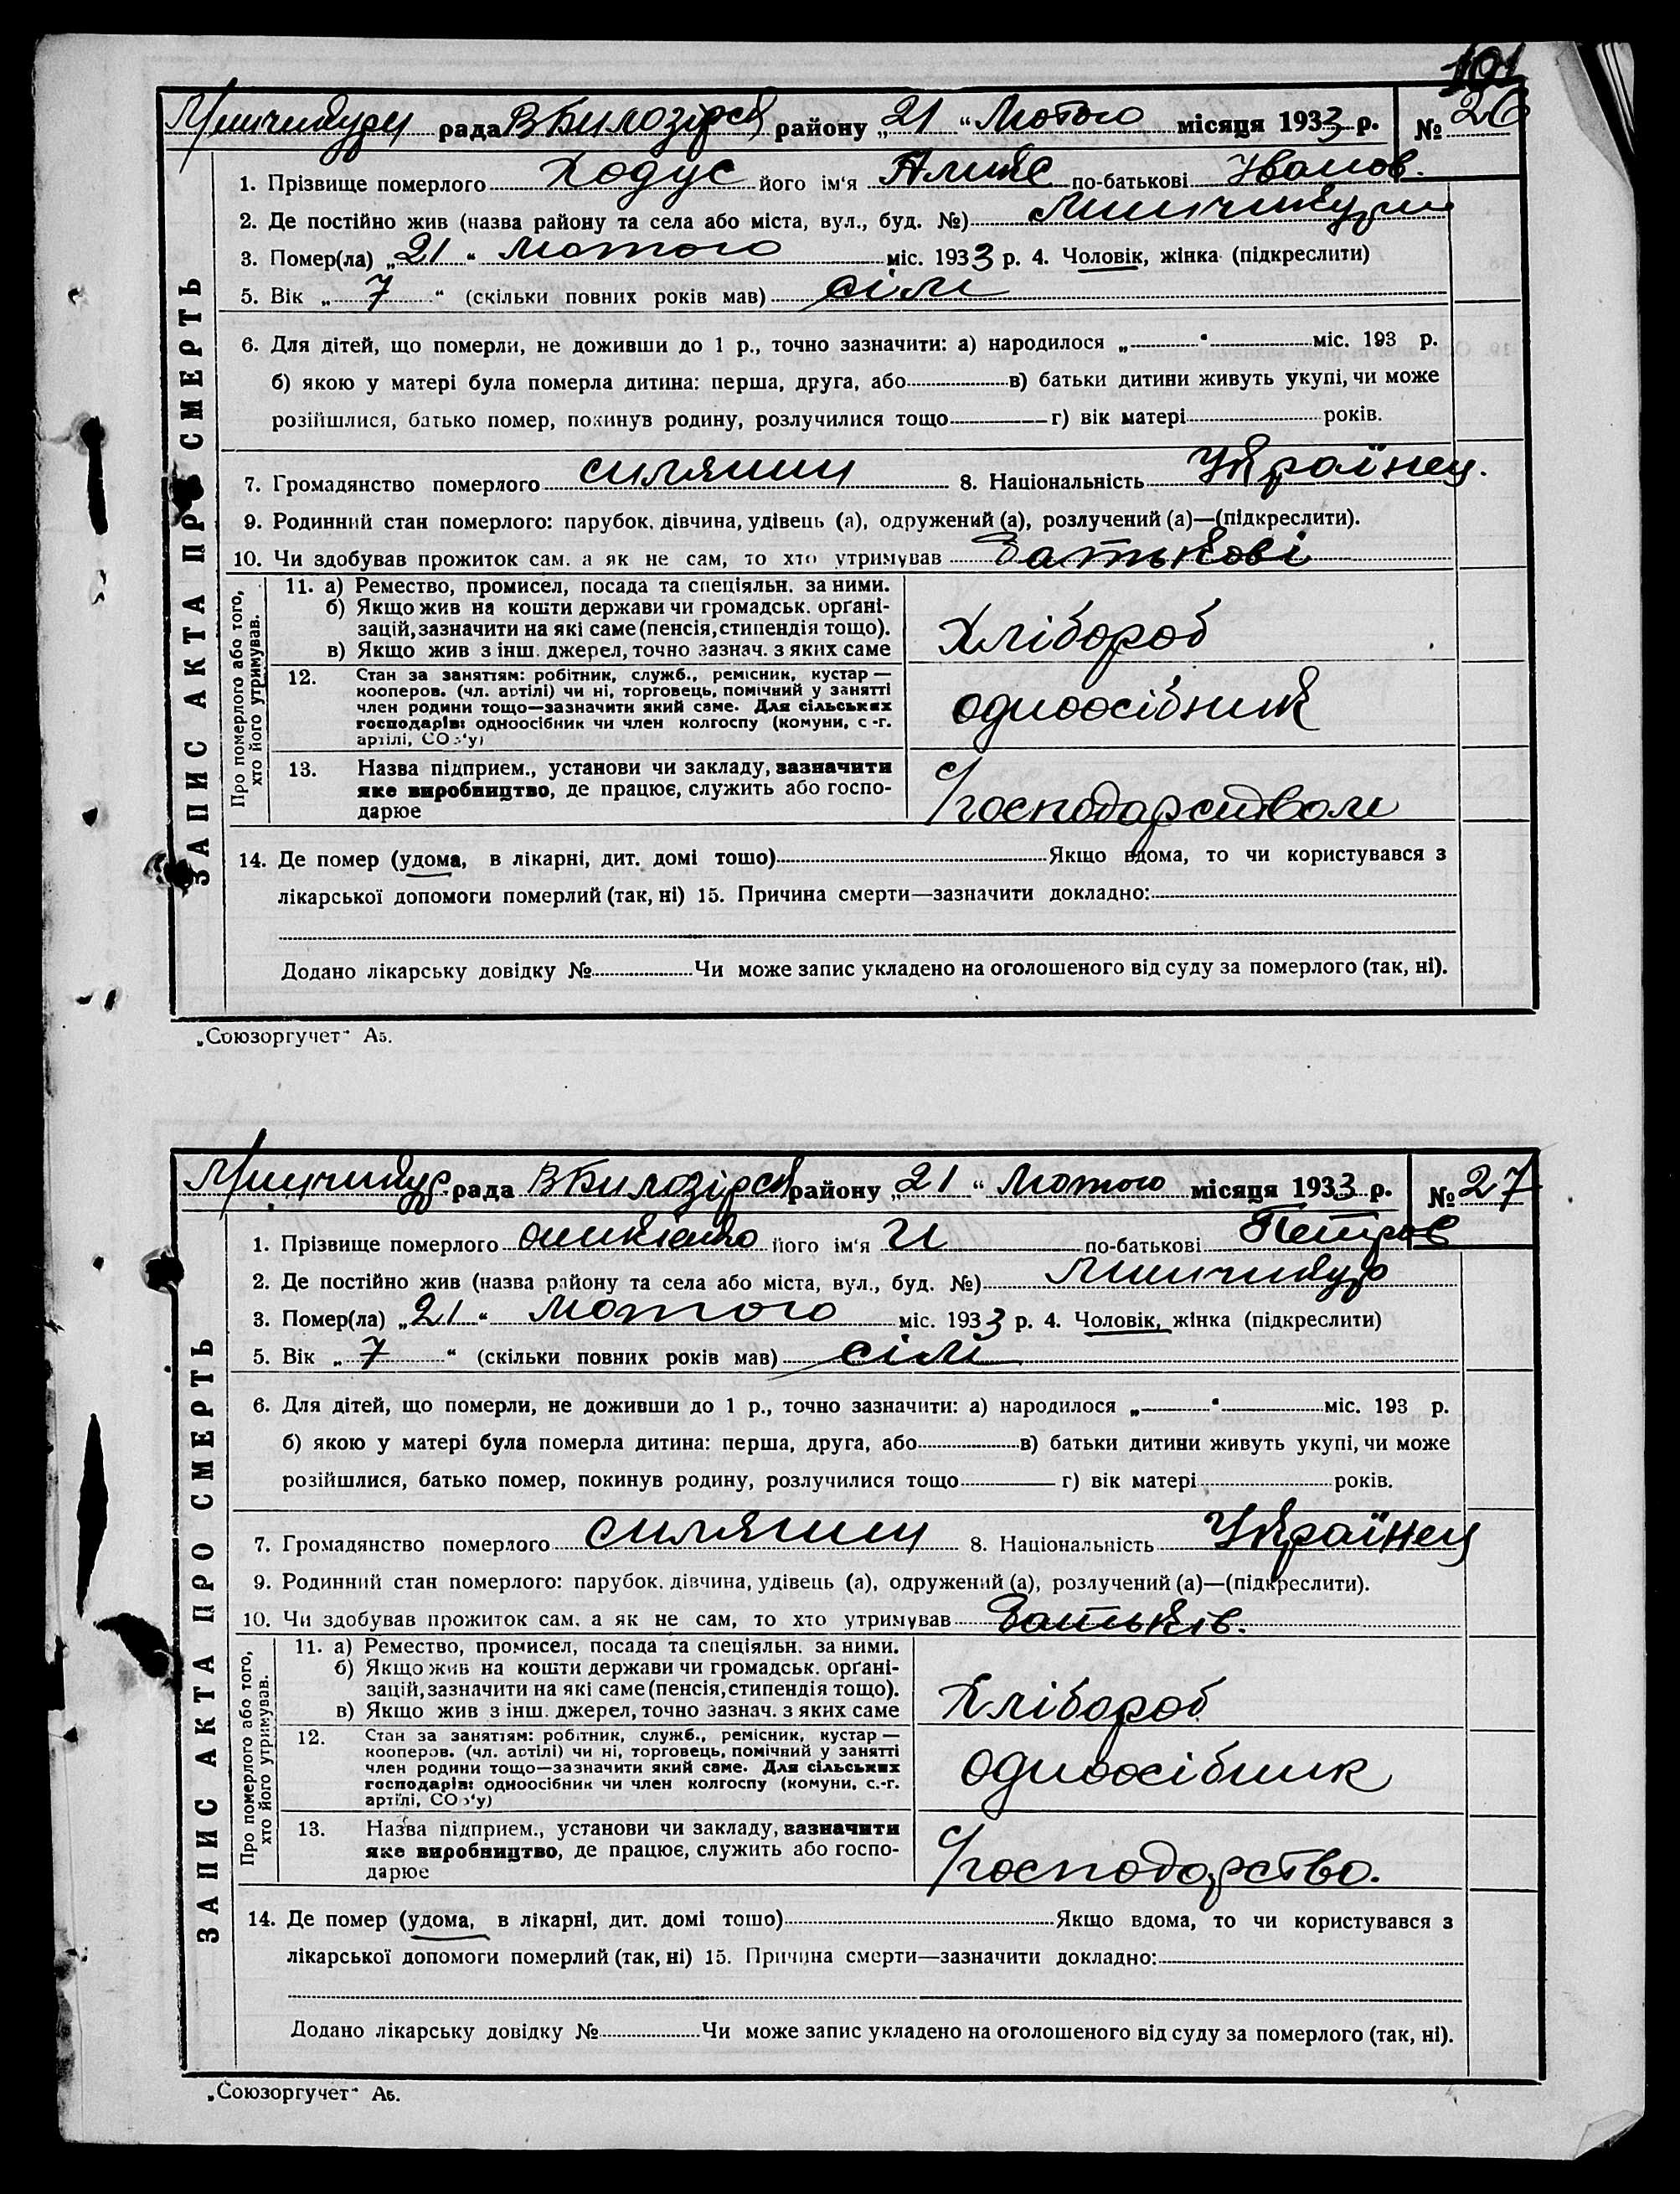 191
рада ВБилозірся району „21“ Лютого місяця 1933 р. № 26
ЗАПИС АКТА ПРО СМЕРТЬ
1. Прізвище померлого Ходус його ім'я по-батькові Іванов.
2. Де постійно жив (назва району та села або міста, вул., буд. №)
3. Помер(ла) „21“ лютого міс. 1933 р. 4. Чоловік, жінка (підкреслити)
5. Вік „7“ (скільки повних років мав) сім
6. Для дітей, що померли, не доживши до 1 р., точно зазначити: а) народилося „ “ міс. 193 р.
б) якою у матері була померла дитина: перша, друга, або в) батьки дитини живуть укупі, чи може
розійшлися, батько помер, покинув родину, розлучилися тощо г) вік матері років.
7. Громадянство померлого силянин 8. Національність Українец.
9. Родинний стан померлого: парубок, дівчина, удівець (а), одружений (а), розлучений (а)—(підкреслити).
10. Чи здобував прожиток сам, а як не сам, то хто утримував Батькові
Про померлого або того, хто його утримував.
11. а) Ремество, промисел, посада та спеціяльн. за ними.
б) Якщо жив на кошти держави чи громадськ. орґані-
зацій, зазначити на які саме (пенсія, стипендія тощо).
в) Якщо жив з інш. джерел, точно зазнач. з яких саме
Хлібороб
12. Стан за заняттям: робітник, служб., ремісник, кустар —
кооперов. (чл. артілі) чи ні, торговець, помічний у занятті
член родини тощо—зазначити який саме. Для сільських
господарів: одноосібник чи член колгоспу (комуни, с.-г.
артілі, СОЗ'у)
одноосібник
13. Назва підприєм., установи чи закладу, зазначити
яке виробництво, де працює, служить або госпо-
дарює
Господарством
14. Де помер (удома, в лікарні, дит. домі тошо) Якщо вдома, то чи користувався з
лікарської допомоги померлий (так, ні) 15. Причина смерти—зазначити докладно:
Додано лікарську довідку № Чи може запис укладено на оголошеного від суду за померлого (так, ні).
„Союзоргучет“ Аб.
рада ВБилозірся району „21“ Лютого місяця 1933 р. № 27
ЗАПИС АКТА ПРО СМЕРТЬ
1. Прізвище померлого його ім'я И по-батькові Петров
2. Де постійно жив (назва району та села або міста, вул., буд. №)
3. Помер(ла) „21“ лютого міс. 1933 р. 4. Чоловік, жінка (підкреслити)
5. Вік „7“ (скільки повних років мав) сім
6. Для дітей, що померли, не доживши до 1 р., точно зазначити: а) народилося „ “ міс. 193 р.
б) якою у матері була померла дитина: перша, друга, або в) батьки дитини живуть укупі, чи може
розійшлися, батько помер, покинув родину, розлучилися тощо г) вік матері років.
7. Громадянство померлого силянин 8. Національність Українец
9. Родинний стан померлого: парубок, дівчина, удівець (а), одружений (а), розлучений (а)—(підкреслити).
10. Чи здобував прожиток сам, а як не сам, то хто утримував Батьків.
Про померлого або того, хто його утримував.
11. а) Ремество, промисел, посада та спеціяльн. за ними.
б) Якщо жив на кошти держави чи громадськ. орґані-
зацій, зазначити на які саме (пенсія, стипендія тощо).
в) Якщо жив з інш. джерел, точно зазнач. з яких саме
Хлібороб
12. Стан за заняттям: робітник, служб., ремісник, кустар —
кооперов. (чл. артілі) чи ні, торговець, помічний у занятті
член родини тощо—зазначити який саме. Для сільських
господарів: одноосібник чи член колгоспу (комуни, с.-г.
артілі, СОЗ'у)
одноосібник
13. Назва підприєм., установи чи закладу, зазначити
яке виробництво, де працює, служить або госпо-
дарює
Господарство.
14. Де помер (удома, в лікарні, дит. домі тошо) Якщо вдома, то чи користувався з
лікарської допомоги померлий (так, ні) 15. Причина смерти—зазначити докладно:
Додано лікарську довідку № Чи може запис укладено на оголошеного від суду за померлого (так, ні).
„Союзоргучет“ Аб.